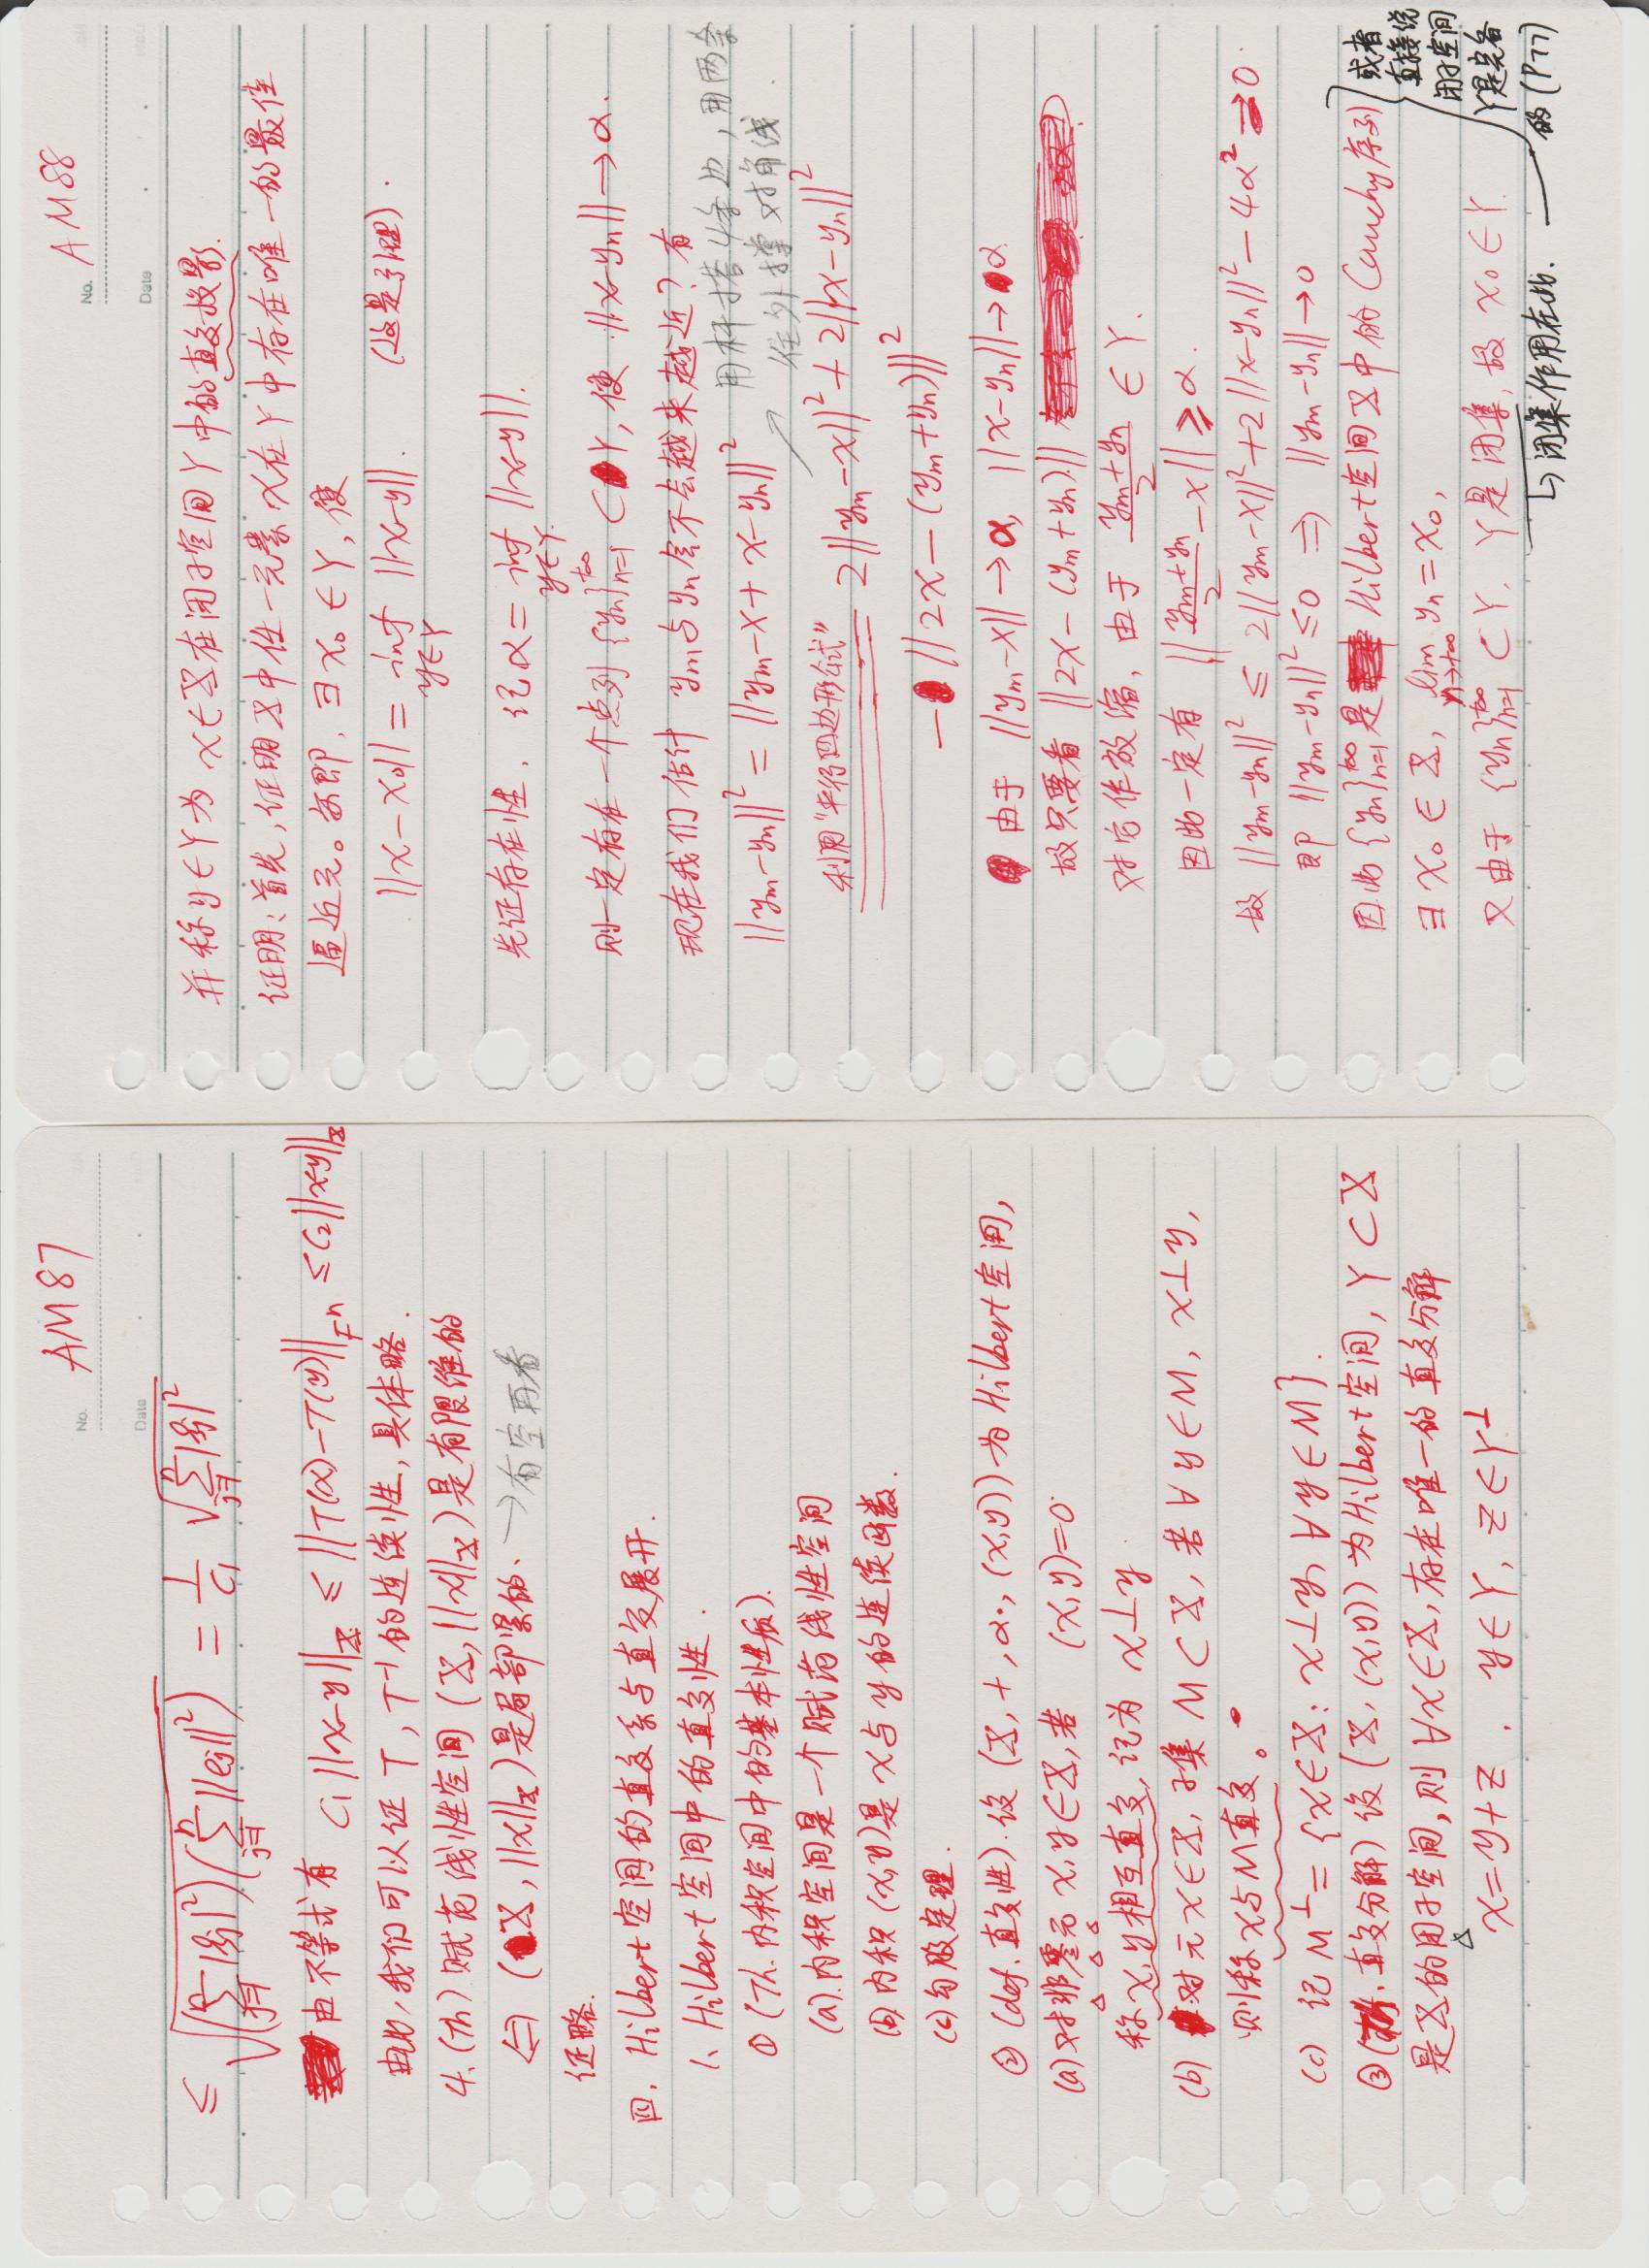 No. AM87
Date
≤ √((∑_{j=1}^{n}|ξj|²)(∑_{j=1}^{n}||ej||²)) = 1/C₁ √(∑_{j=1}^{n}|ξj|²)
由不等式有 C₁||x-y||_X ≤ ||T(x)-T(y)||_{Fⁿ} ≤ C₂||x-y||_X
由此,我们可以证 T, T⁻¹的连续性,具体略.
4.(Th) 赋范线性空间 (X, ||x||_X)是有限维的
⇔ (X, ||x||_X)是局部紧的. → 有空再看
证略.
四. Hilbert空间的直交系与直交展开.
1. Hilbert空间中的直交性.
① (Th. 内积空间中的基本性质).
(a).内积空间是一个赋范线性空间
(b).内积 (x,y)是 x与 y 的连续函数.
(c)勾股定理.
② (def. 直交性). 设 (X, +, α·, (x,y)) 为Hilbert空间,
(a)对非零元 x,y∈X,若 (x,y)=0
称 x,y相互直交, 记为 x⊥y
(b) 对元 x∈X, 子集 M⊂X, 若∀y∈M, x⊥y,
则称 x与M直交。
(c) 记 M^⊥ = {x∈X: x⊥y, ∀y∈M}.
③ (Th. 直交分解) 设 (X, (x,y)) 为Hilbert空间, Y⊂X
是X的闭子空间,则 ∀x∈X,存在唯一的直交分解
x=y+z . y∈Y, z∈Y^⊥
No. AM88
Date
并称y∈Y为 x∈X在闭子空间Y中的直交投影.
证明:首先,证明X中任一元素x在Y中存在唯一的最佳
逼近元。亦即, ∃x₀∈Y, 使
||x-x₀|| = inf_{y∈Y} ||x-y||. (这是引理).
先证存在性. 记α= inf_{y∈Y} ||x-y||.
则一定存在一个点列 {yn}_{n=1}^{+∞} ⊂ Y, 使 ||x-yn|| → α.
现在我们估计 ym与yn会不会越来越近? 有
||ym-yn||² = ||ym-x+x-yn||²
用杆搭4条边, 用两条
往外撑对角线.
利用"平行四边形公式" 2||ym-x||²+2||x-yn||²
- ||2x-(ym+yn)||²
由于 ||ym-x||→α, ||x-yn||→α
故只要看 ||2x-(ym+yn)||
对它作放缩, 由于 (ym+yn)/2 ∈Y.
因此一定有 ||(ym+yn)/2 - x|| ≥ α.
故 ||ym-yn||² ≤ 2||ym-x||²+2||x-yn||²-4α² → 0.
即 ||ym-yn||² ≤0 ⇒ ||ym-yn||→0
因此 {yn}_{n=1}^{+∞} 是 Hilbert空间X中的 Cauchy序列
∃x₀∈X, lim_{n→+∞} yn=x₀,
又由于 {yn}_{n=1}^{+∞} ⊂Y, Y是闭集, 故 x₀∈Y.
↳ 闭集作用在此.
或者
直接说
闭子空间
Y是完备
的 (P77)